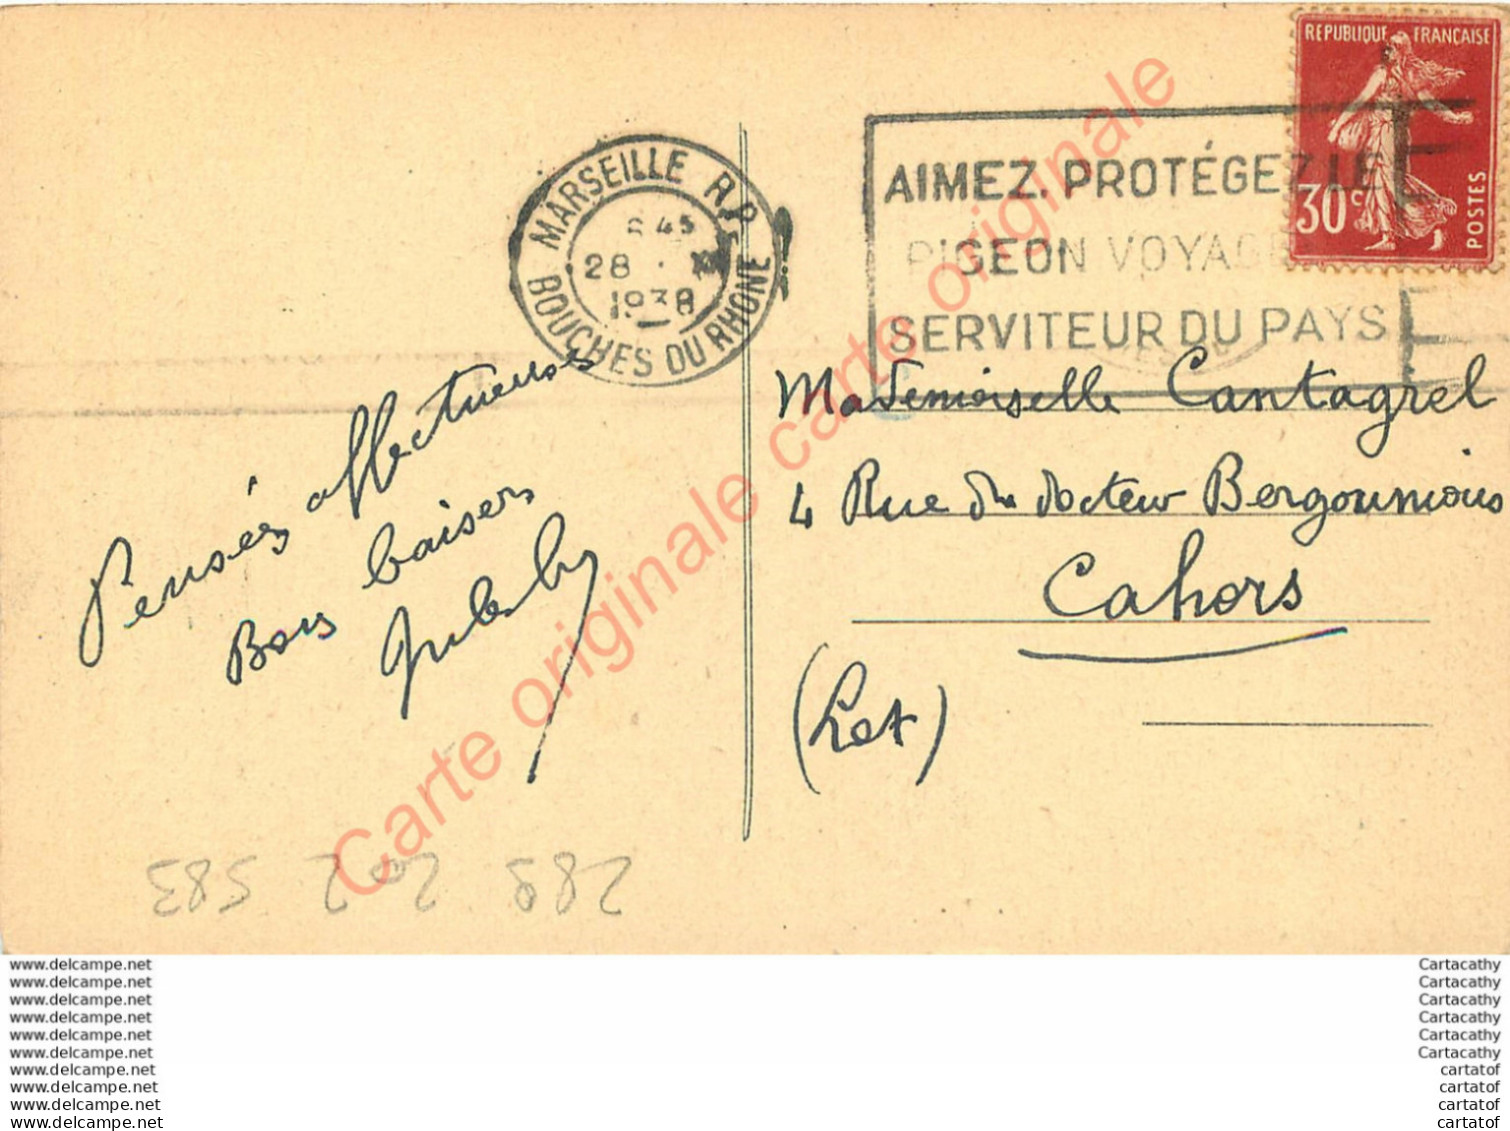 RÉPUBLIQUE FRANÇAISE
30c
POSTES
MARSEILLE R.P.
45
28 · XII
1938
BOUCHES DU RHONE
AIMEZ. PROTÉGEZ LE
PIGEON VOYAG
SERVITEUR DU PAYS
Pensées affectueuses
Bons baisers
Mademoiselle Cantagrel
4 Rue du docteur Bergounioux
Cahors
(Lot)
288 202 583
Carte originale carte originale
www.delcampe.net
www.delcampe.net
www.delcampe.net
www.delcampe.net
www.delcampe.net
www.delcampe.net
www.delcampe.net
www.delcampe.net
www.delcampe.net
www.delcampe.net
Cartacathy
Cartacathy
Cartacathy
Cartacathy
Cartacathy
Cartacathy
cartatof
cartatof
cartatof
cartatof